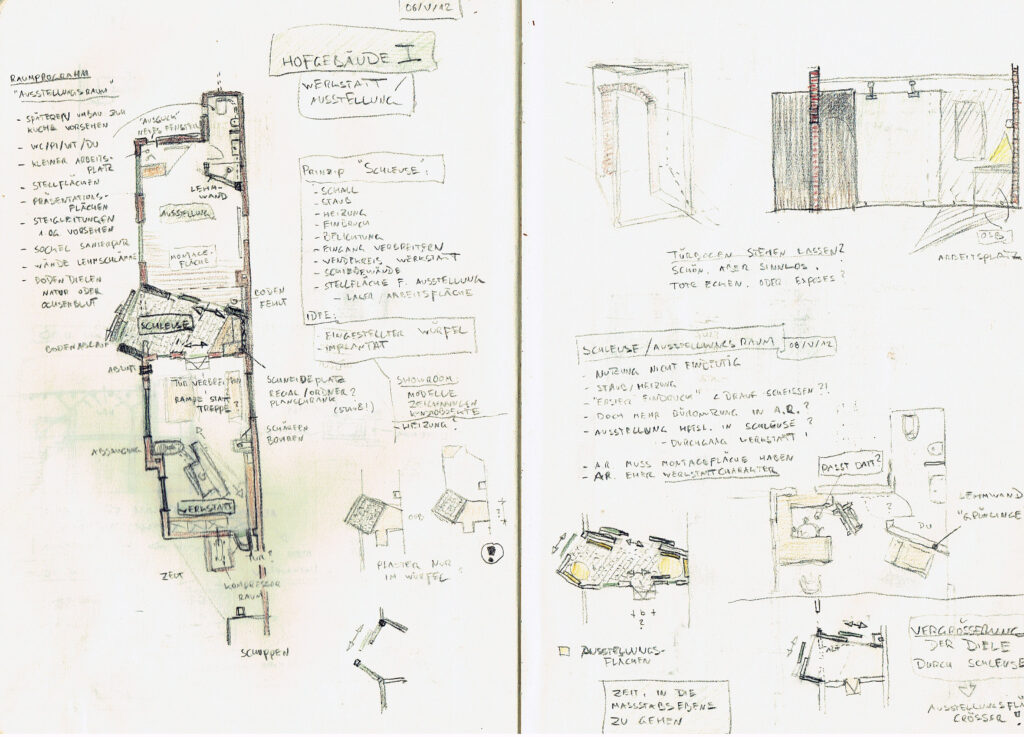 06/V/12
HOFGEBÄUDE I
WERKSTATT /
AUSSTELLUNG
RAUMPROGRAMM
"AUSSTELLUNGSRAUM"
- SPÄTEREN UMBAU ZUR
KÜCHE VORSEHEN
- WC/PI/WT/DU
- KLEINER ARBEITS-
PLATZ
- STELLFLÄCHEN
- PRÄSENTATIONS-
FLÄCHEN
- STEIGLEITUNGEN
1.OG. VORSEHEN
- SOCKEL SANIERPUTZ
- WÄNDE LEHMSCHLÄMME
- BODENDIELEN
NATUR ODER
OCHSENBLUT
"AUSGUCK"
NEUES FENSTER
LEHM-
WAND
AUSSTELLUNG
MONTAGE-
FLÄCHE
BODEN
FEHLT
SCHLEUSE
BODENABLAUF
ABLUFT
TÜR VERBREITERN
RAMPE STATT
TREPPE?
SCHNEIDEPLATZ
REGAL/ORDNER?
PLANSCHRANK
(STAUB!)
SCHÄRFEN
BOHREN
ABSAUGUNG
WERKSTATT
TÜR?
ZELT
KOMPRESSOR
RAUM
SCHUPPEN
PRINZIP "SCHLEUSE":
- SCHALL
- STAUB
- HEIZUNG
- EINDRUCK
- BELICHTUNG
- EINGANG VERBREITERN
- WENDEKREIS WERKSTATT
- SCHIEBEWÄNDE
- STELLFLÄCHE F. AUSSTELLUNG
- LAGER/ARBEITSFLÄCHE
IDEE:
- EINGESTELLTER WÜRFEL
- IMPLANTAT
SHOWROOM
MODELLE
ZEICHNUNGEN
KUNSTOBJEKTE
- HEIZUNG?
OSB
PFLASTER NUR
IM WÜRFEL?
TÜRBOGEN STEHEN LASSEN?
SCHÖN, ABER SINNLOS.
TOTE ECKEN. ODER EXPOSÉ?
OSB
ARBEITSPLATZ
SCHLEUSE/AUSSTELLUNGSRAUM 08/V/12
- NUTZUNG NICHT EINDEUTIG
- STAUB/HEIZUNG
- "ERSTER EINDRUCK" < DRAUF SCHEISSEN?!
- DOCH MEHR BÜRONUTZUNG IN A.R.?
- AUSSTELLUNG HPTSL. IN SCHLEUSE?
- DURCHGANG WERKSTATT!
- A.R. MUSS MONTAGEFLÄCHE HABEN
- AR. EHER WERKSTATTCHARAKTER
PASST DATT?
?
DU
LEHMWAND
AUSSTELLUNGS-
FLÄCHEN
ZEIT, IN DIE
MASSSTABSEBENE
ZU GEHEN
VERGRÖSSERUNG
DER DIELE
DURCH SCHLEUSE
AUSSTELLUNGSFL
GRÖSSER!